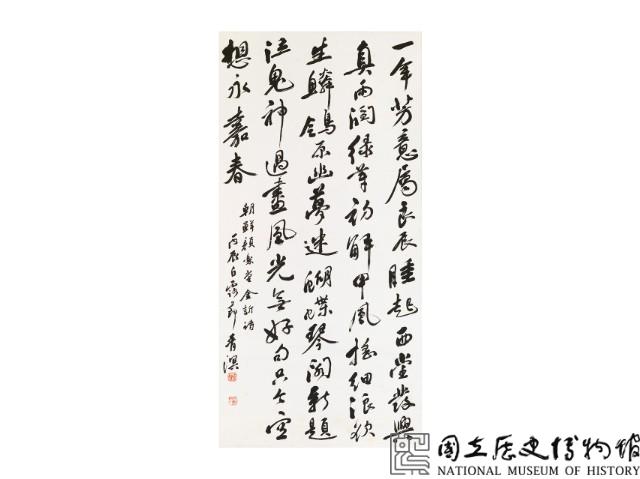 一年芳意屬良辰睡起西堂發興
真雨潤綠芽初解甲風搖細浪欲
生鱗鴒原幽夢迷蝴蝶琴新題
泣鬼神過盡風光無好句只今空
想永嘉春
朝鮮顏樂堂金訢詩
丙辰白露節青溟
國立歷史博物館
NATIONAL MUSEUM OF HISTORY